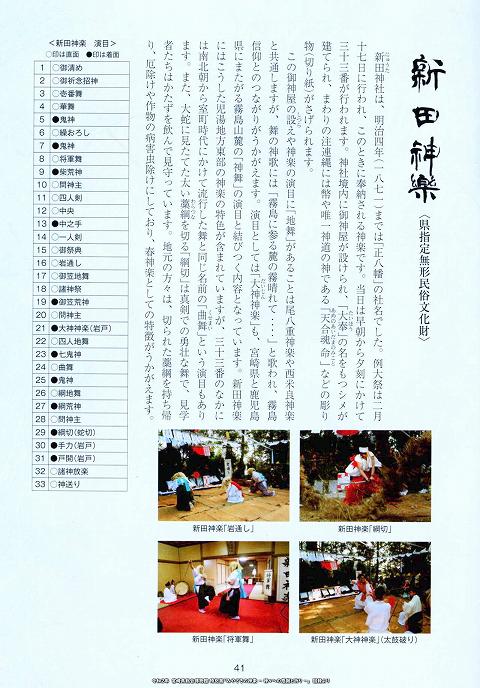 新田神樂
〈県指定無形民俗文化財〉
新田神社は、明治四年(一八七一)までは「正八幡」の社名でした。例大祭は二月
十七日に行われ、このときに奉納される神楽です。当日は早朝から夕刻にかけて
三十三番が行われます。神社境内に御神屋が設けられ、「大奉」の名をもつシメが
建てられ、まわりの注連縄には幣や唯一神道の神である「天合魂命」などの彫り
物(切り紙)がさげられます。
この御神屋の設えや神楽の演目に「地舞」があることは尾八重神楽や西米良神楽
と共通しますが、舞の神歌には「霧島に参る麓の霧晴れて・・・」と歌われ、霧島
信仰とのつながりがうかがえます。演目としては「大神神楽」も、宮崎県と鹿児島
県にまたがる霧島山麓の「神舞」の演目と結びつく内容となっています。新田神楽
にはこうした児湯地方東部の神楽の特色が含まれていますが、三十三番のなかに
は南北朝から室町時代にかけて流行した舞と同じ名前の「曲舞」という演目もあり
ます。また、大蛇に見たてた太い藁綱を切る「綱切」は真剣での勇壮な舞で、見学
者たちはかたずを飲んで見守っています。地元の方々は、切られた藁綱を持ち帰
り、厄除けや作物の病害虫除けにしており、春神楽としての特徴がうかがえます。
<新田神楽 演目>
○印は直面 ●印は着面
1 ○御清め
2 ○御祈念招神
3 ○壱番舞
4 ○華舞
5 ●鬼神
6 ○繰おろし
7 ●鬼神
8 ○将軍舞
9 ●柴荒神
10 ○問神主
11 ○四人剣
12 ○中央
13 ●中之手
14 ○一人剣
15 ○御祭典
16 ○岩通し
17 ○御笠地舞
18 ○諸神祭
19 ●御笠荒神
20 ○問神主
21 ●大神神楽(岩戸)
22 ○四人地舞
23 ●七鬼神
24 ○曲舞
25 ●鬼神
26 ○綱地舞
27 ●綱荒神
28 ○問神主
29 ●綱切(蛇切)
30 ●手力(岩戸)
31 ●戸開(岩戸)
32 ○諸神放楽
33 ○神送り
新田神楽「岩通し」
新田神楽「綱切」
新田神楽「将軍舞」
新田神楽「大神神楽」(太鼓破り)
41